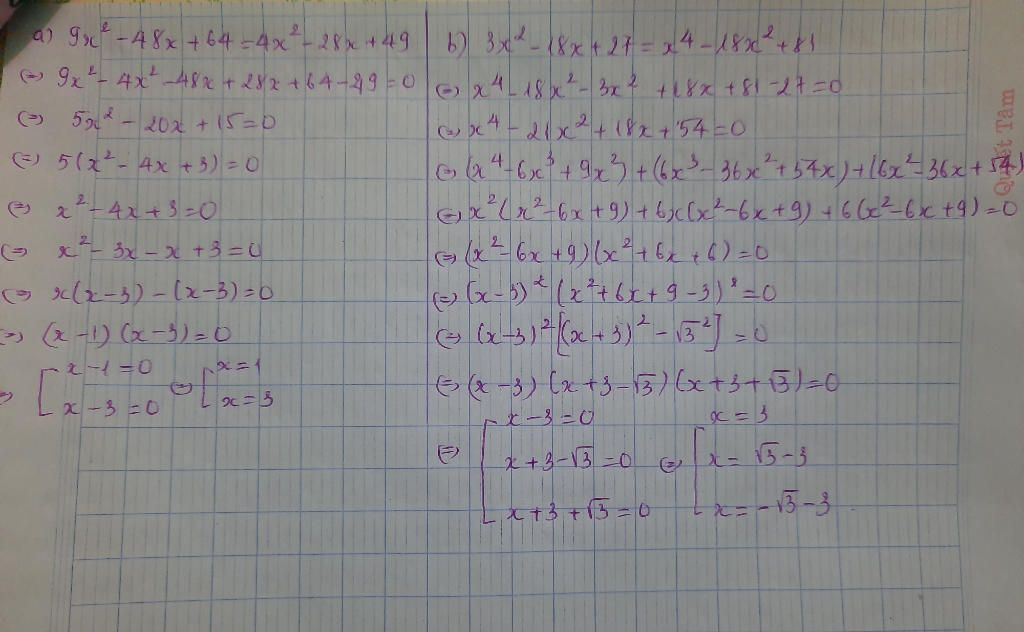 a) 9x² - 48x + 64 = 4x² - 28x + 49
(=) 9x² - 4x² - 48x + 28x + 64 - 49 = 0
(=) 5x² - 20x + 15 = 0
(=) 5(x² - 4x + 3) = 0
(=) x² - 4x + 3 = 0
(=) x² - 3x - x + 3 = 0
(=) x(x-3) - (x-3) = 0
=) (x-1)(x-3) = 0
x - 1 = 0 (=) x = 1
x - 3 = 0 x = 3
b) 3x² - 18x + 27 = x⁴ - 18x² + 81
(=) x⁴ - 18x² - 3x² + 18x + 81 - 27 = 0
(=) x⁴ - 21x² + 18x + 54 = 0
(=) (x⁴ - 6x³ + 9x²) + (6x³ - 36x² + 54x) + (6x² - 36x + 54)
(=) x²(x² - 6x + 9) + 6x(x² - 6x + 9) + 6(x² - 6x + 9) = 0
(=) (x² - 6x + 9)(x² + 6x + 6) = 0
(=) (x-3)² (x² + 6x + 9 - 3)² = 0
(=) (x-3)² [(x+3)² - √3²] = 0
(=) (x-3) (x+3-√3) (x+3+√3) = 0
x - 3 = 0 x = 3
(=) x + 3 - √3 = 0 (=) x = √3 - 3
x + 3 + √3 = 0 x = -√3 - 3
Quyết Tâm